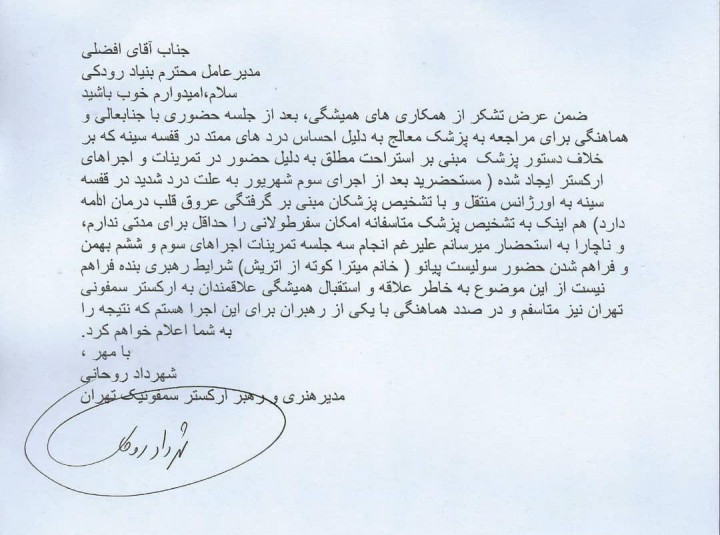 جناب آقای افضلی
مدیرعامل محترم بنیاد رودکی
سلام،امیدوارم خوب باشید
ضمن عرض تشکر از همکاری های همیشگی، بعد از جلسه حضوری با جنابعالی و
هماهنگی برای مراجعه به پزشک معالج به دلیل احساس درد های ممتد در قفسه سینه که بر
خلاف دستور پزشک مبنی بر استراحت مطلق به دلیل حضور در تمرینات و اجراهای
ارکستر ایجاد شده ( مستحضرید بعد از اجرای سوم شهریور به علت درد شدید در قفسه
سینه به اورژانس منتقل و با تشخیص پزشکان مبنی بر گرفتگی عروق قلب درمان ادامه
دارد) هم اینک به تشخیص پزشک متاسفانه امکان سفرطولانی را حداقل برای مدتی ندارم،
و ناچارا به استحضار میرسانم علیرغم انجام سه جلسه تمرینات اجراهای سوم و ششم بهمن
و فراهم شدن حضور سولیست پیانو ( خانم میترا کوته از اتریش) شرایط رهبری بنده فراهم
نیست از این موضوع به خاطر علاقه و استقبال همیشگی علاقمندان به ارکستر سمفونی
تهران نیز متاسفم و در صدد هماهنگی با یکی از رهبران برای این اجرا هستم که نتیجه را
به شما اعلام خواهم کرد.
با مهر ،
شهرداد روحانی
مدیرهنری و رهبر ارکستر سمفونیک تهران
شهرداد روحانی